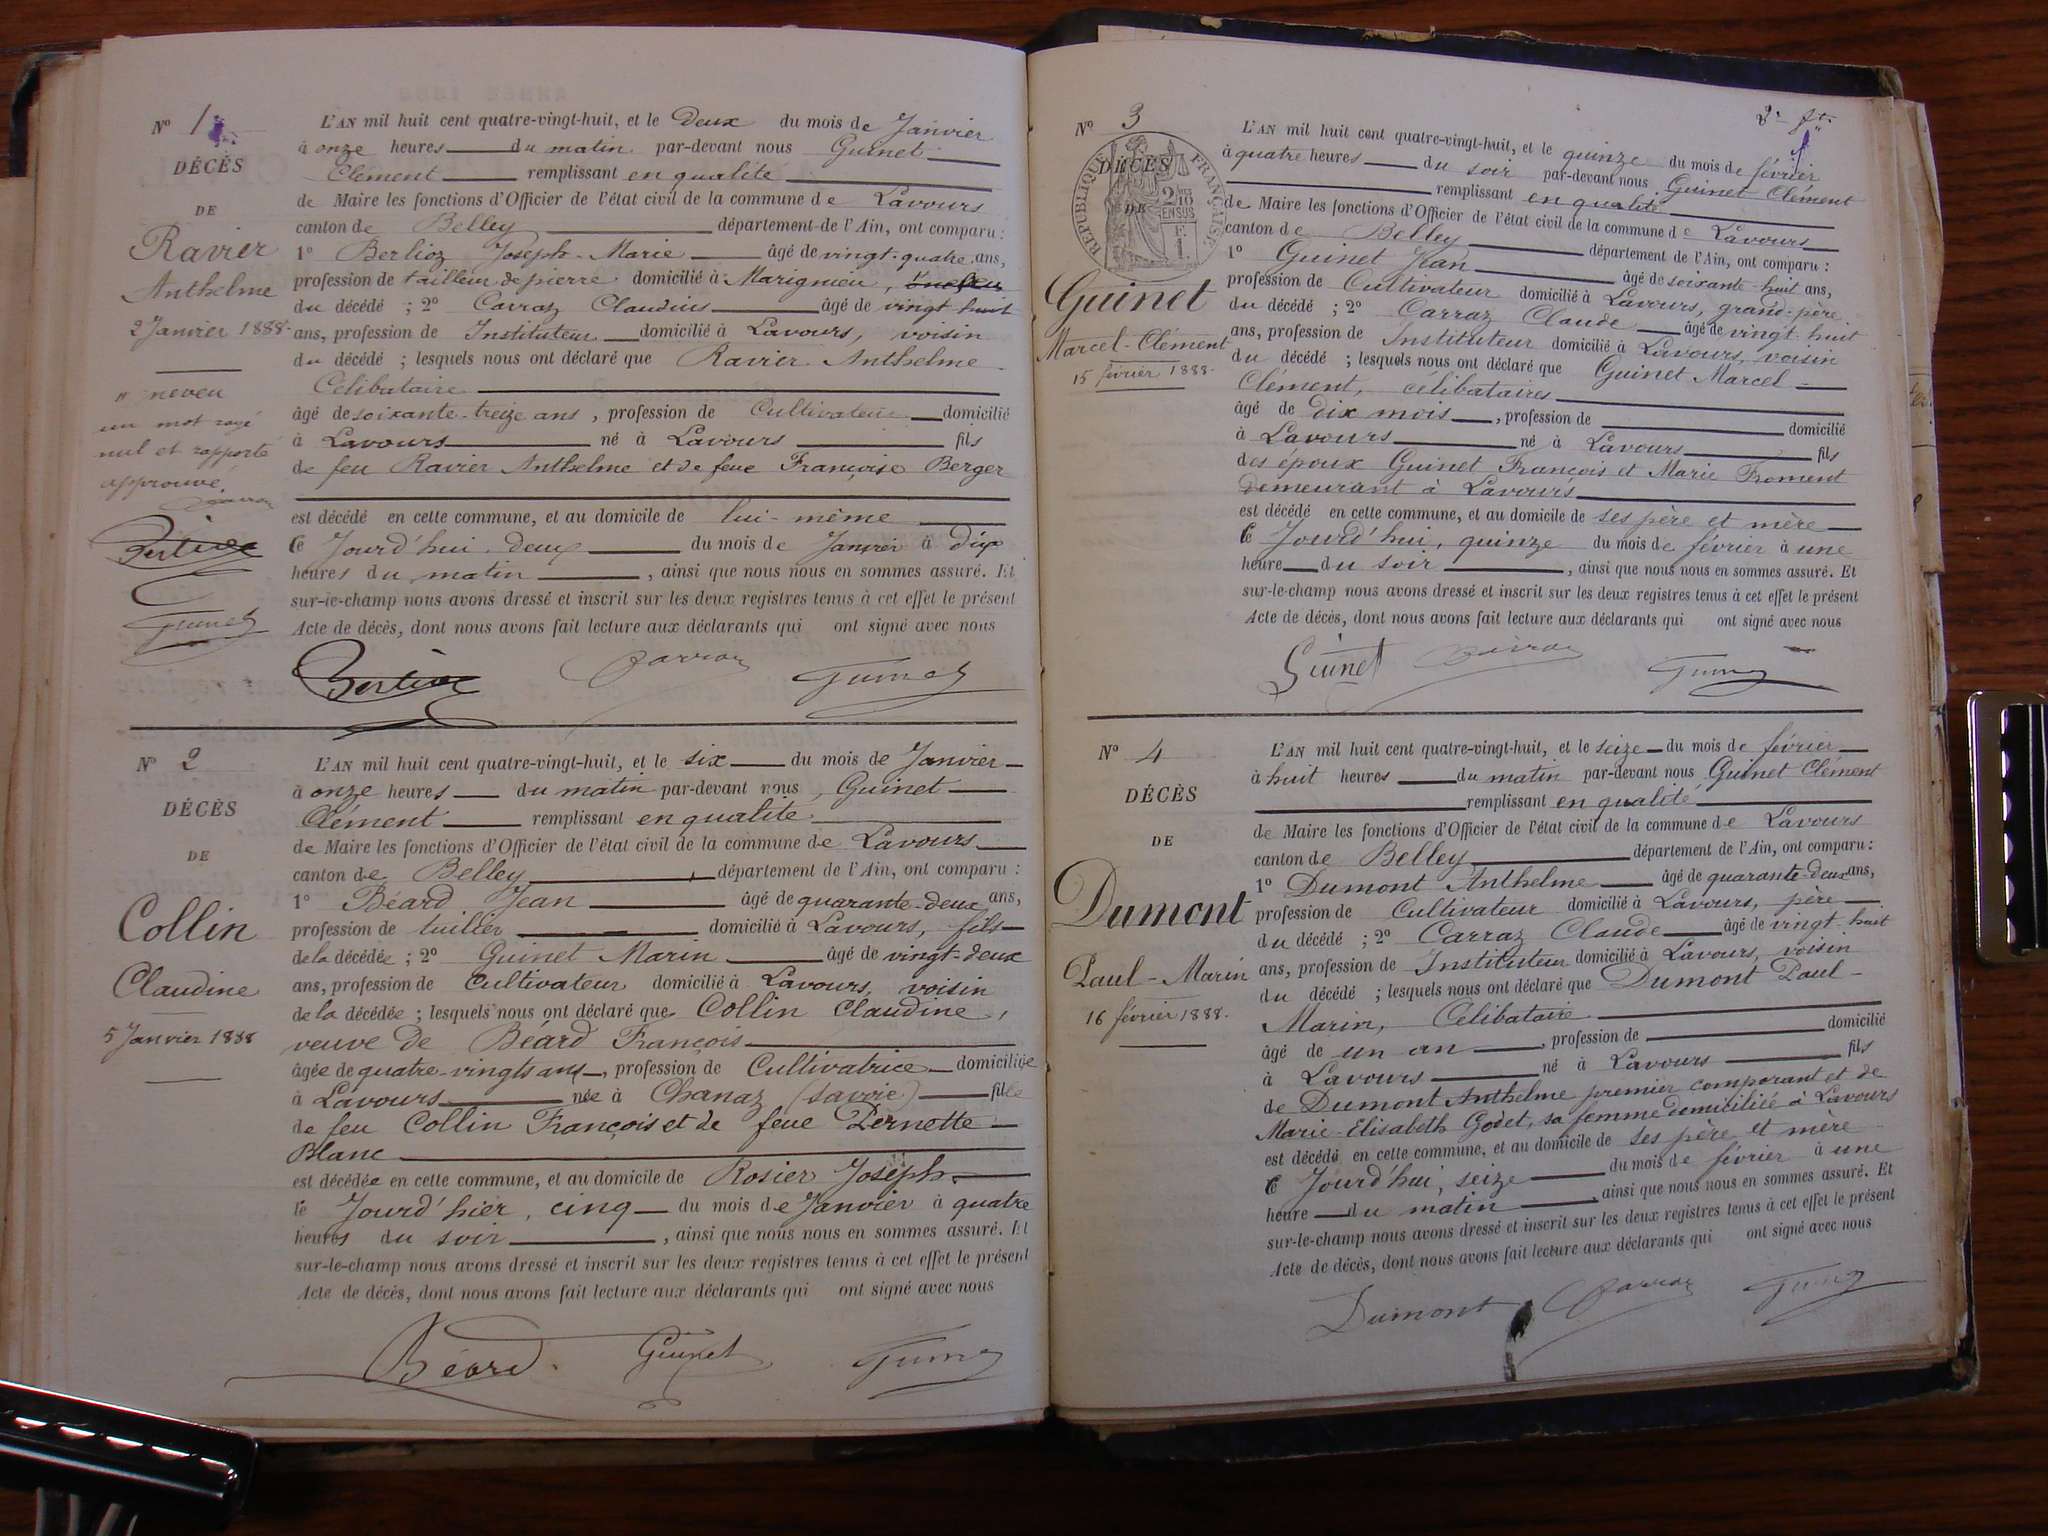 Nº 1
DÉCÈS
DE
Ravier
Anthelme
2 Janvier 1888.
" neveu
un mot rayé
nul et rapporté
approuvé
L'AN mil huit cent quatre-vingt-huit, et le Deux du mois de Janvier
à onze heures du matin par-devant nous Guinet
Clément remplissant en qualité
de Maire les fonctions d'Officier de l'état civil de la commune de Lavours
canton de Belley département de l'Ain, ont comparu :
1º Berlioz Joseph-Marie âgé de vingt-quatre ans,
profession de tailleur de pierre domicilié à Marignieu,
du décédé ; 2º Carraz Claudius âgé de vingt huit
ans, profession de Instituteur domicilié à Lavours, voisin
du décédé ; lesquels nous ont déclaré que Ravier Anthelme
Célibataire
âgé de soixante-treize ans, profession de Cultivateur domicilié
à Lavours né à Lavours fils
de feu Ravier Anthelme et de feue Françoise Berger
est décédé en cette commune, et au domicile de lui-même
Ce Jourd'hui deux du mois de Janvier à dix
heures du matin, ainsi que nous nous en sommes assuré. Et
sur-le-champ nous avons dressé et inscrit sur les deux registres tenus à cet effet le présent
Acte de décès, dont nous avons fait lecture aux déclarants qui ont signé avec nous
Berlioz Carraz Guinet
Nº 2
DÉCÈS
DE
Collin
Claudine
5 Janvier 1888
L'AN mil huit cent quatre-vingt-huit, et le six du mois de Janvier
à onze heures du matin par-devant nous, Guinet
Clément remplissant en qualité
de Maire les fonctions d'Officier de l'état civil de la commune de Lavours
canton de Belley département de l'Ain, ont comparu :
1º Béard Jean âgé de quarante-deux ans,
profession de tuilier domicilié à Lavours, fils
de la décédée ; 2º Guinet Marin âgé de vingt-deux
ans, profession de cultivateur domicilié à Lavours, voisin
de la décédée ; lesquels nous ont déclaré que Collin Claudine,
veuve de Béard François
âgée de quatre-vingts ans, profession de Cultivatrice domiciliée
à Lavours née à Chanaz (Savoie) fille
de feu Collin François et de feue Pernette
Blanc
est décédée en cette commune, et au domicile de Rosier Joseph
le Jourd'hier, cinq du mois de Janvier à quatre
heures du soir, ainsi que nous nous en sommes assuré. Et
sur-le-champ nous avons dressé et inscrit sur les deux registres tenus à cet effet le présent
Acte de décès, dont nous avons fait lecture aux déclarants qui ont signé avec nous
Béard. Guinet Guinet
Nº 3
RÉPUBLIQUE FRANÇAISE
2/10 EN SUS
F. 1.
DÉCÈS
DE
Guinet
Marcel-Clément
15 février 1888.
L'AN mil huit cent quatre-vingt-huit, et le quinze du mois de février
à quatre heures du soir par-devant nous Guinet Clément
remplissant en qualité
de Maire les fonctions d'Officier de l'état civil de la commune de Lavours
canton de Belley département de l'Ain, ont comparu :
1º Guinet Jean âgé de soixante-huit ans,
profession de Cultivateur domicilié à Lavours, grand-père
du décédé ; 2º Carraz Claude âgé de vingt huit
ans, profession de Instituteur domicilié à Lavours, voisin
du décédé ; lesquels nous ont déclaré que Guinet Marcel-
Clément, célibataires
âgé de dix mois, profession de domicilié
à Lavours né à Lavours fils
des époux Guinet François et Marie Froment
demeurant à Lavours
est décédé en cette commune, et au domicile de ses père et mère
Ce Jourd'hui, quinze du mois de février à une
heure du soir, ainsi que nous nous en sommes assuré. Et
sur-le-champ nous avons dressé et inscrit sur les deux registres tenus à cet effet le présent
Acte de décès, dont nous avons fait lecture aux déclarants qui ont signé avec nous
Guinet Carraz Guinet
Nº 4
DÉCÈS
DE
Dumont
Paul-Marin
16 février 1888.
L'AN mil huit cent quatre-vingt-huit, et le seize du mois de février
à huit heures du matin par-devant nous Guinet Clément
remplissant en qualité
de Maire les fonctions d'Officier de l'état civil de la commune de Lavours
canton de Belley département de l'Ain, ont comparu :
1º Dumont Anthelme âgé de quarante-deux ans,
profession de Cultivateur domicilié à Lavours, père
du décédé ; 2º Carraz Claude âgé de vingt-huit
ans, profession de Instituteur domicilié à Lavours, voisin
du décédé ; lesquels nous ont déclaré que Dumont Paul-
Marin, Célibataire
âgé de un an, profession de domicilié
à Lavours né à Lavours fils
de Dumont Anthelme premier comparant et de
Marie-Elisabeth Godet, sa femme domiciliée à Lavours
est décédé en cette commune, et au domicile de ses père et mère
Ce Jourd'hui, seize du mois de février à une
heure du matin, ainsi que nous nous en sommes assuré. Et
sur-le-champ nous avons dressé et inscrit sur les deux registres tenus à cet effet le présent
Acte de décès, dont nous avons fait lecture aux déclarants qui ont signé avec nous
Dumont Carraz Guinet